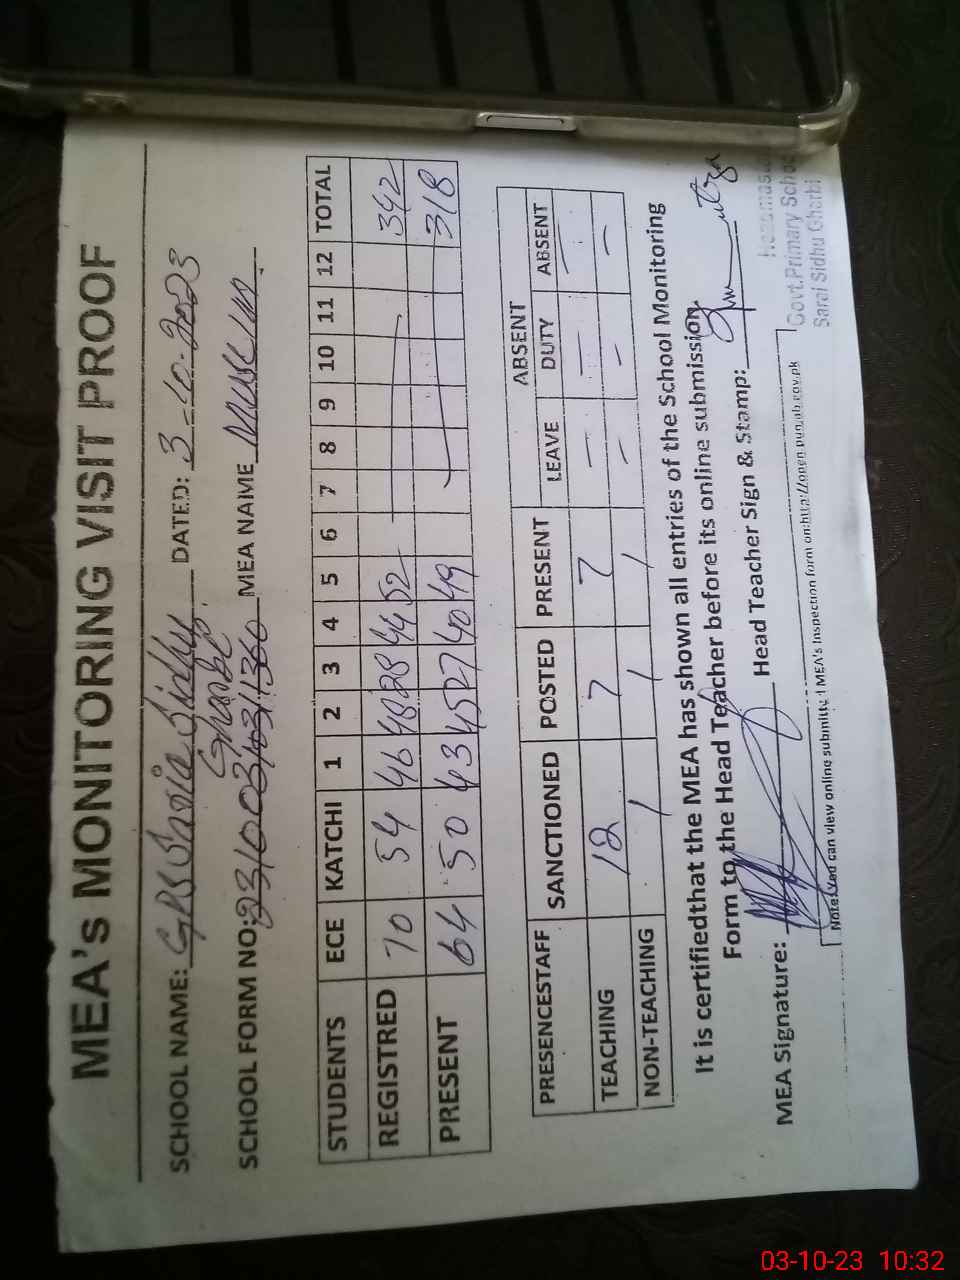 MEA's MONITORING VISIT PROOF
SCHOOL NAME: GPS Saraia Sidhu Gharbi DATED: 3-10-2023
SCHOOL FORM NO: MEA NAME
STUDENTS ECE KATCHI 1 2 3 4 5 6 7 8 9 10 11 12 TOTAL
REGISTRED 70 54 46 48 28 44 52 342
PRESENT 64 50 43 45 27 40 49 318
PRESENCESTAFF SANCTIONED POSTED PRESENT ABSENT
LEAVE DUTY ABSENT
TEACHING 12 7 7 - - -
NON-TEACHING 1 1 1 - - -
It is certifiedthat the MEA has shown all entries of the School Monitoring
Form to the Head Teacher before its online submission.
MEA Signature: Head Teacher Sign & Stamp:
Headmaster
Govt.Primary School
Sarai Sidhu Gharbi
Note: You can view online submitted MEA's Inspection form on:http://open.punjab.gov.pk
03-10-23 10:32